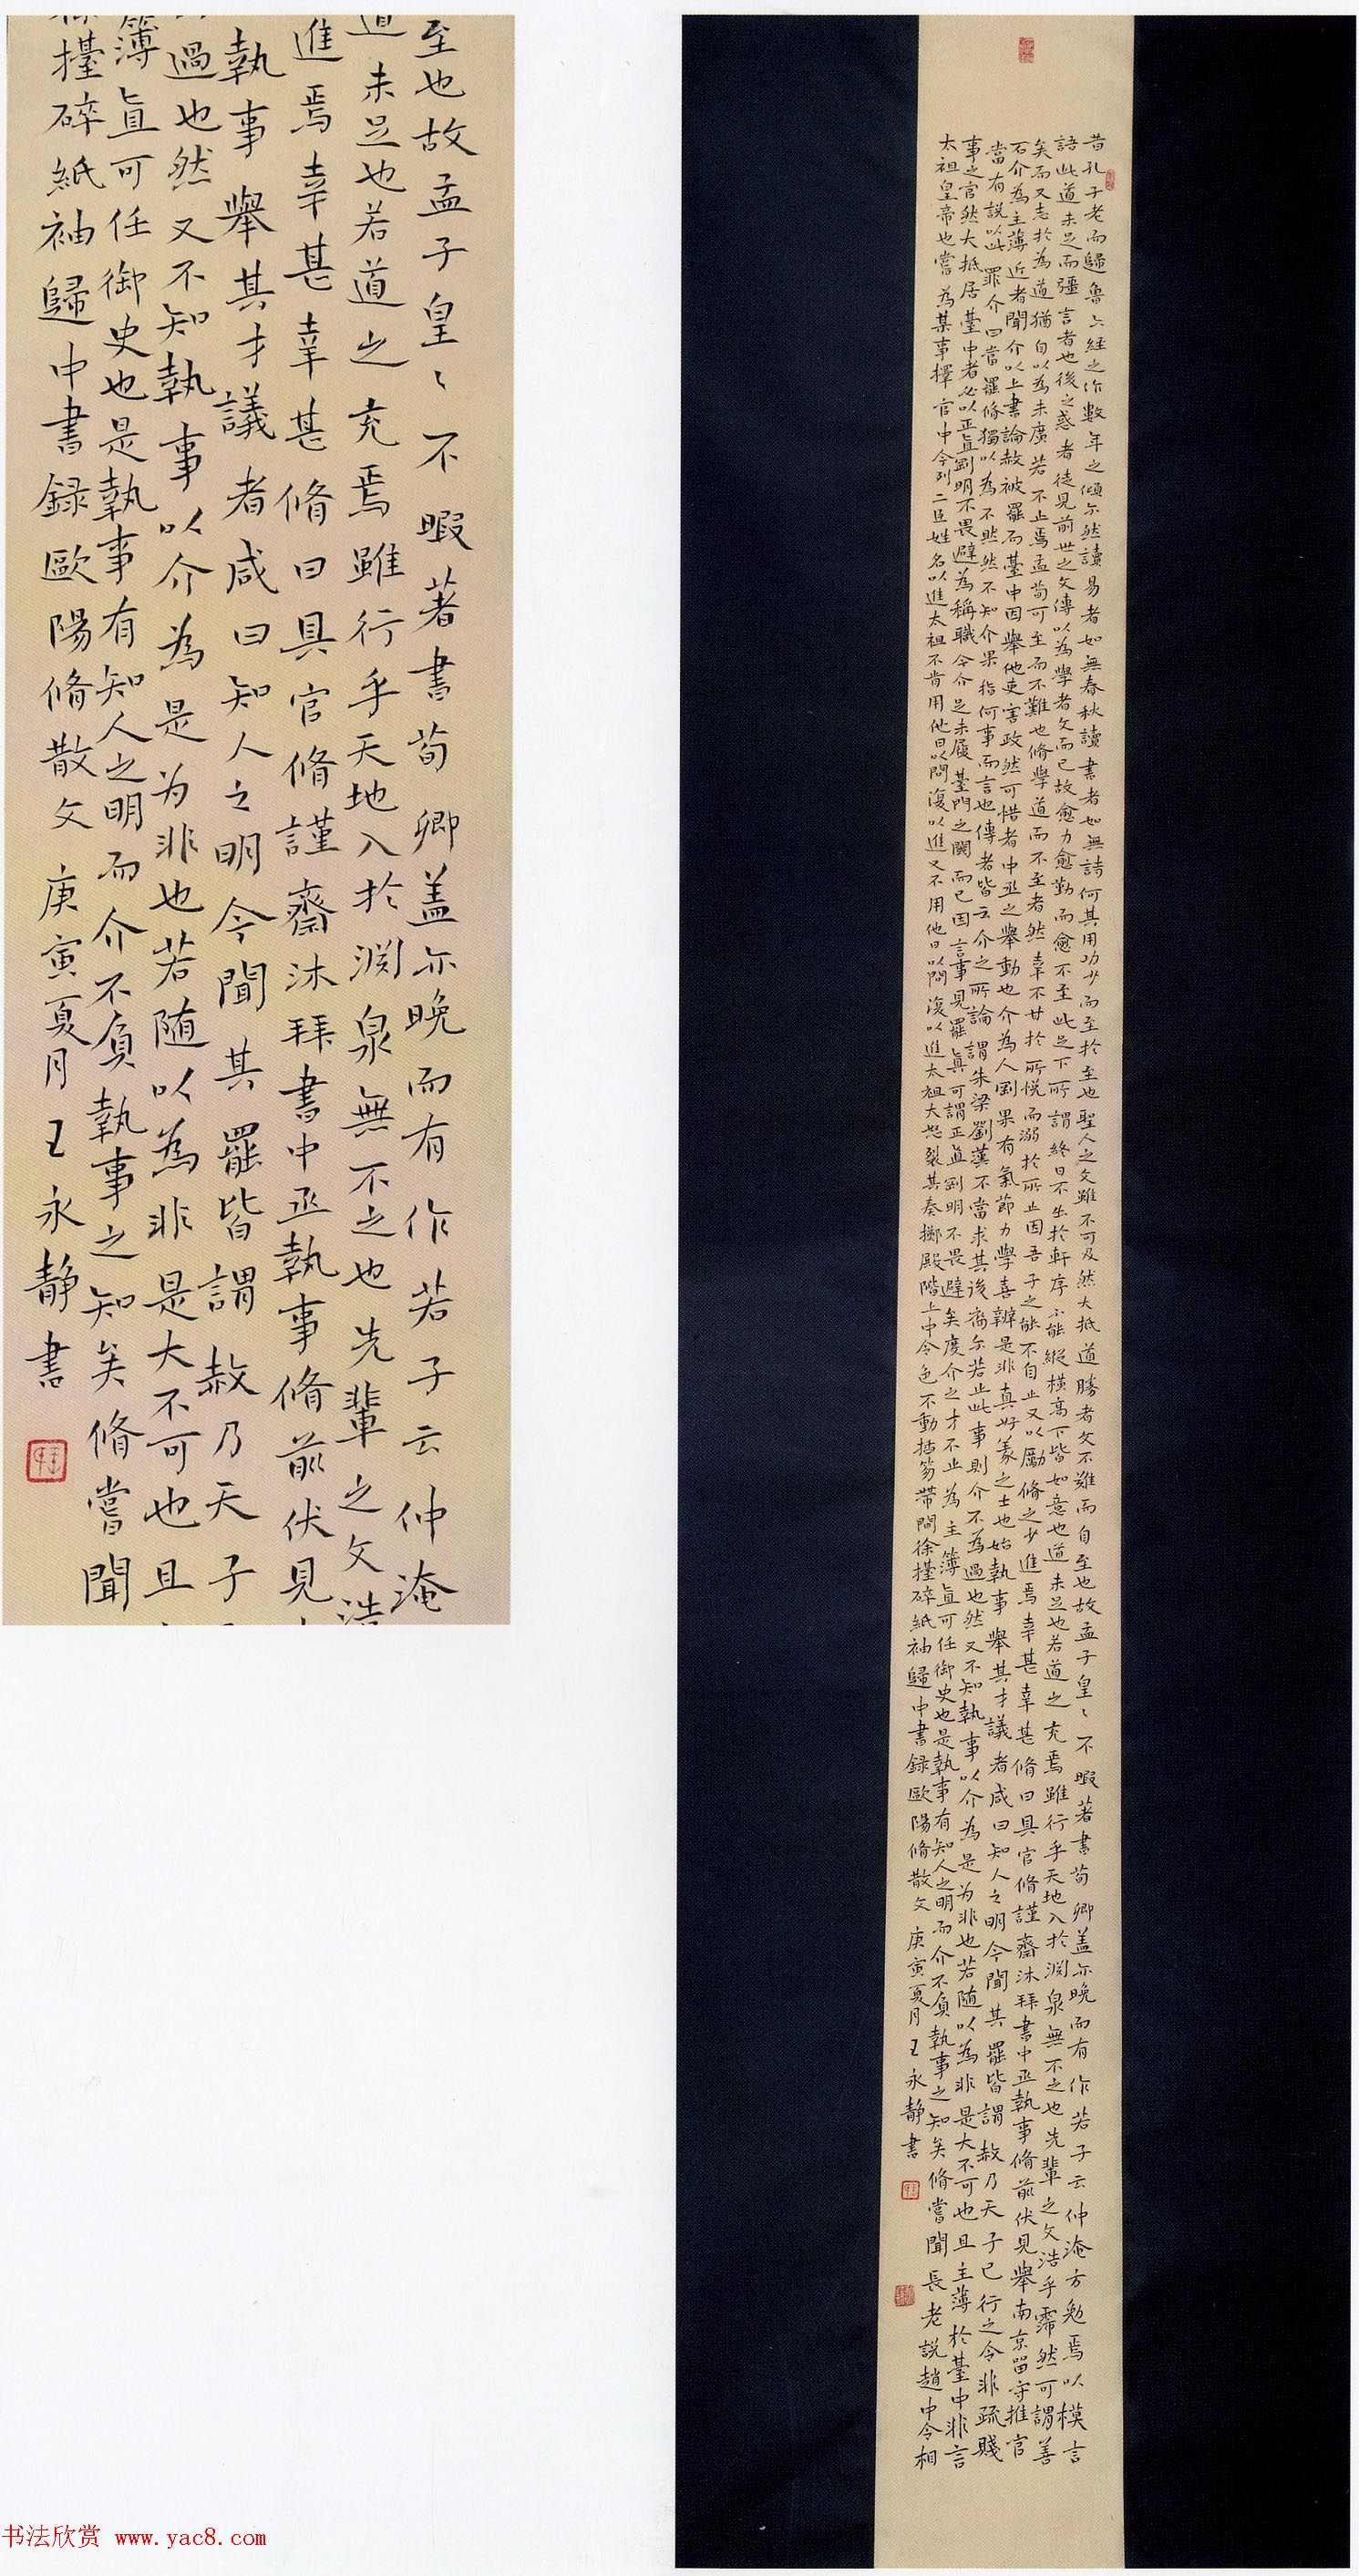 昔孔子老而歸魯六經之作數年之頃尔然讀易者如無春秋讀書者如無詩何其用功少而至於至也聖人之文雖不可及然大抵道勝者文不難而自至也故孟子皇〻不暇著書荀卿盖亦晚而有作若子云仲淹方勉焉以模言
語此道未足而彊言者也後之惑者徒見前世之文傳以為學者文而已故愈力愈勤而愈不至此足下所謂終日不出於軒序不能縱橫高下皆如意也道未足也若道之充焉雖行乎天地入於淵泉無不之也先輩之文浩乎霈然可謂善
矣而又志於為道猶自以為未廣若不止焉孟荀可至而不難也脩學道而不至者然幸不甘於所悅而溺於所止因吾子之能不自止又以勵脩之少進焉幸甚幸甚脩曰具官脩謹齋沐拜書中丞執事脩前伏見舉南京留守推官
石介為主薄近者聞介以上書論赦被罷而臺中因舉他吏害政然可惜者中丞之舉動也介為人剛果有氣節力學喜辨是非真好義之士也始執事舉其才議者咸曰知人之明今聞其罷皆謂赦乃天子已行之令非疏賤
當有説以此罪介曰當罷脩獨以為不然然不知介果指何事而言也傳者皆云介之所論謂朱梁劉漢不當求其後裔尔若止此事則介不為過也然又不知執事以介為是为非也若随以為非是大不可也且主薄於臺中非言
事之官然大抵居臺中者必以正直剛明不畏避為稱職今介足未履臺門之闕而已因言事見罷真可謂正直剛明不畏避矣度介之才不止為主簿直可任御史也是執事有知人之明而介不負執事之知矣脩嘗聞長老説趙中令相
太祖皇帝也嘗為某事擇官中令列二臣姓名以進太祖不肯用他日以問復以進又不用他日以問復以進太祖大怒裂其奏擲殿階上中令色不動插笏帶間徐擡碎紙袖歸中書録歐陽脩散文 庚寅夏月王永静書
至也故孟子皇〻不暇著書荀卿盖亦晚而有作若子云仲淹
道未足也若道之充焉雖行乎天地入於淵泉無不之也先輩之文浩
進焉幸甚幸甚脩曰具官脩謹齋沐拜書中丞執事脩前伏見
執事舉其才議者咸曰知人之明今聞其罷皆謂赦乃天子
過也然又不知執事以介為是为非也若随以為非是大不可也且
簿直可任御史也是執事有知人之明而介不負執事之知矣脩嘗聞
徐擡碎紙袖歸中書録歐陽脩散文 庚寅夏月王永静書
书法欣赏 www.yac8.com